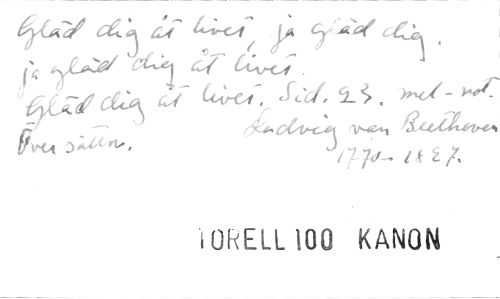 Gläd dig åt livet, ja gläd dig.
ja gläd dig åt livet.
Gläd dig åt livet. Sid. 93. mel-not.
Översättn. Ludvig van Beethoven
1770-1827.
TORELL 100 KANON